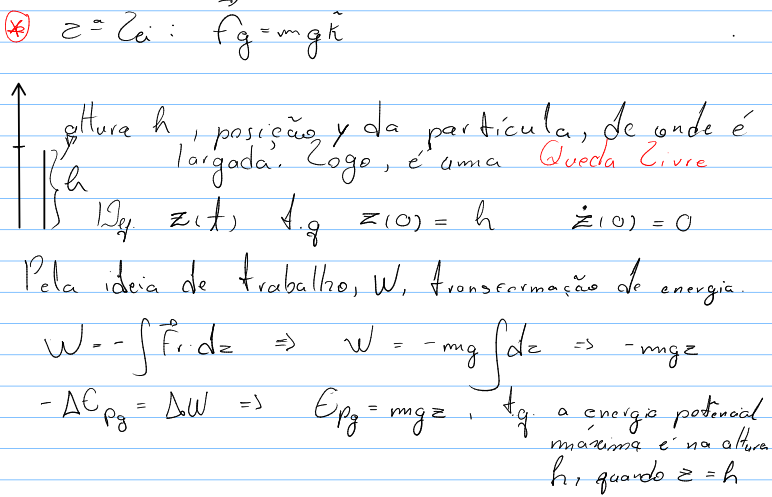 2ª Lei : F⃗g = mg k̂
altura h, posição y da partícula, de onde é
largada. Logo, é uma Queda Livre
h
z(t) t.q z(0) = h ż(0) = 0
Pela ideia de trabalho, W, transformação de energia.
W = - ∫ F⃗r · dz => W = -mg ∫ dz => -mgz
- ΔEpg = ΔW => Epg = mgz , t.q. a energia potencial
máxima é na altura
h, quando z = h